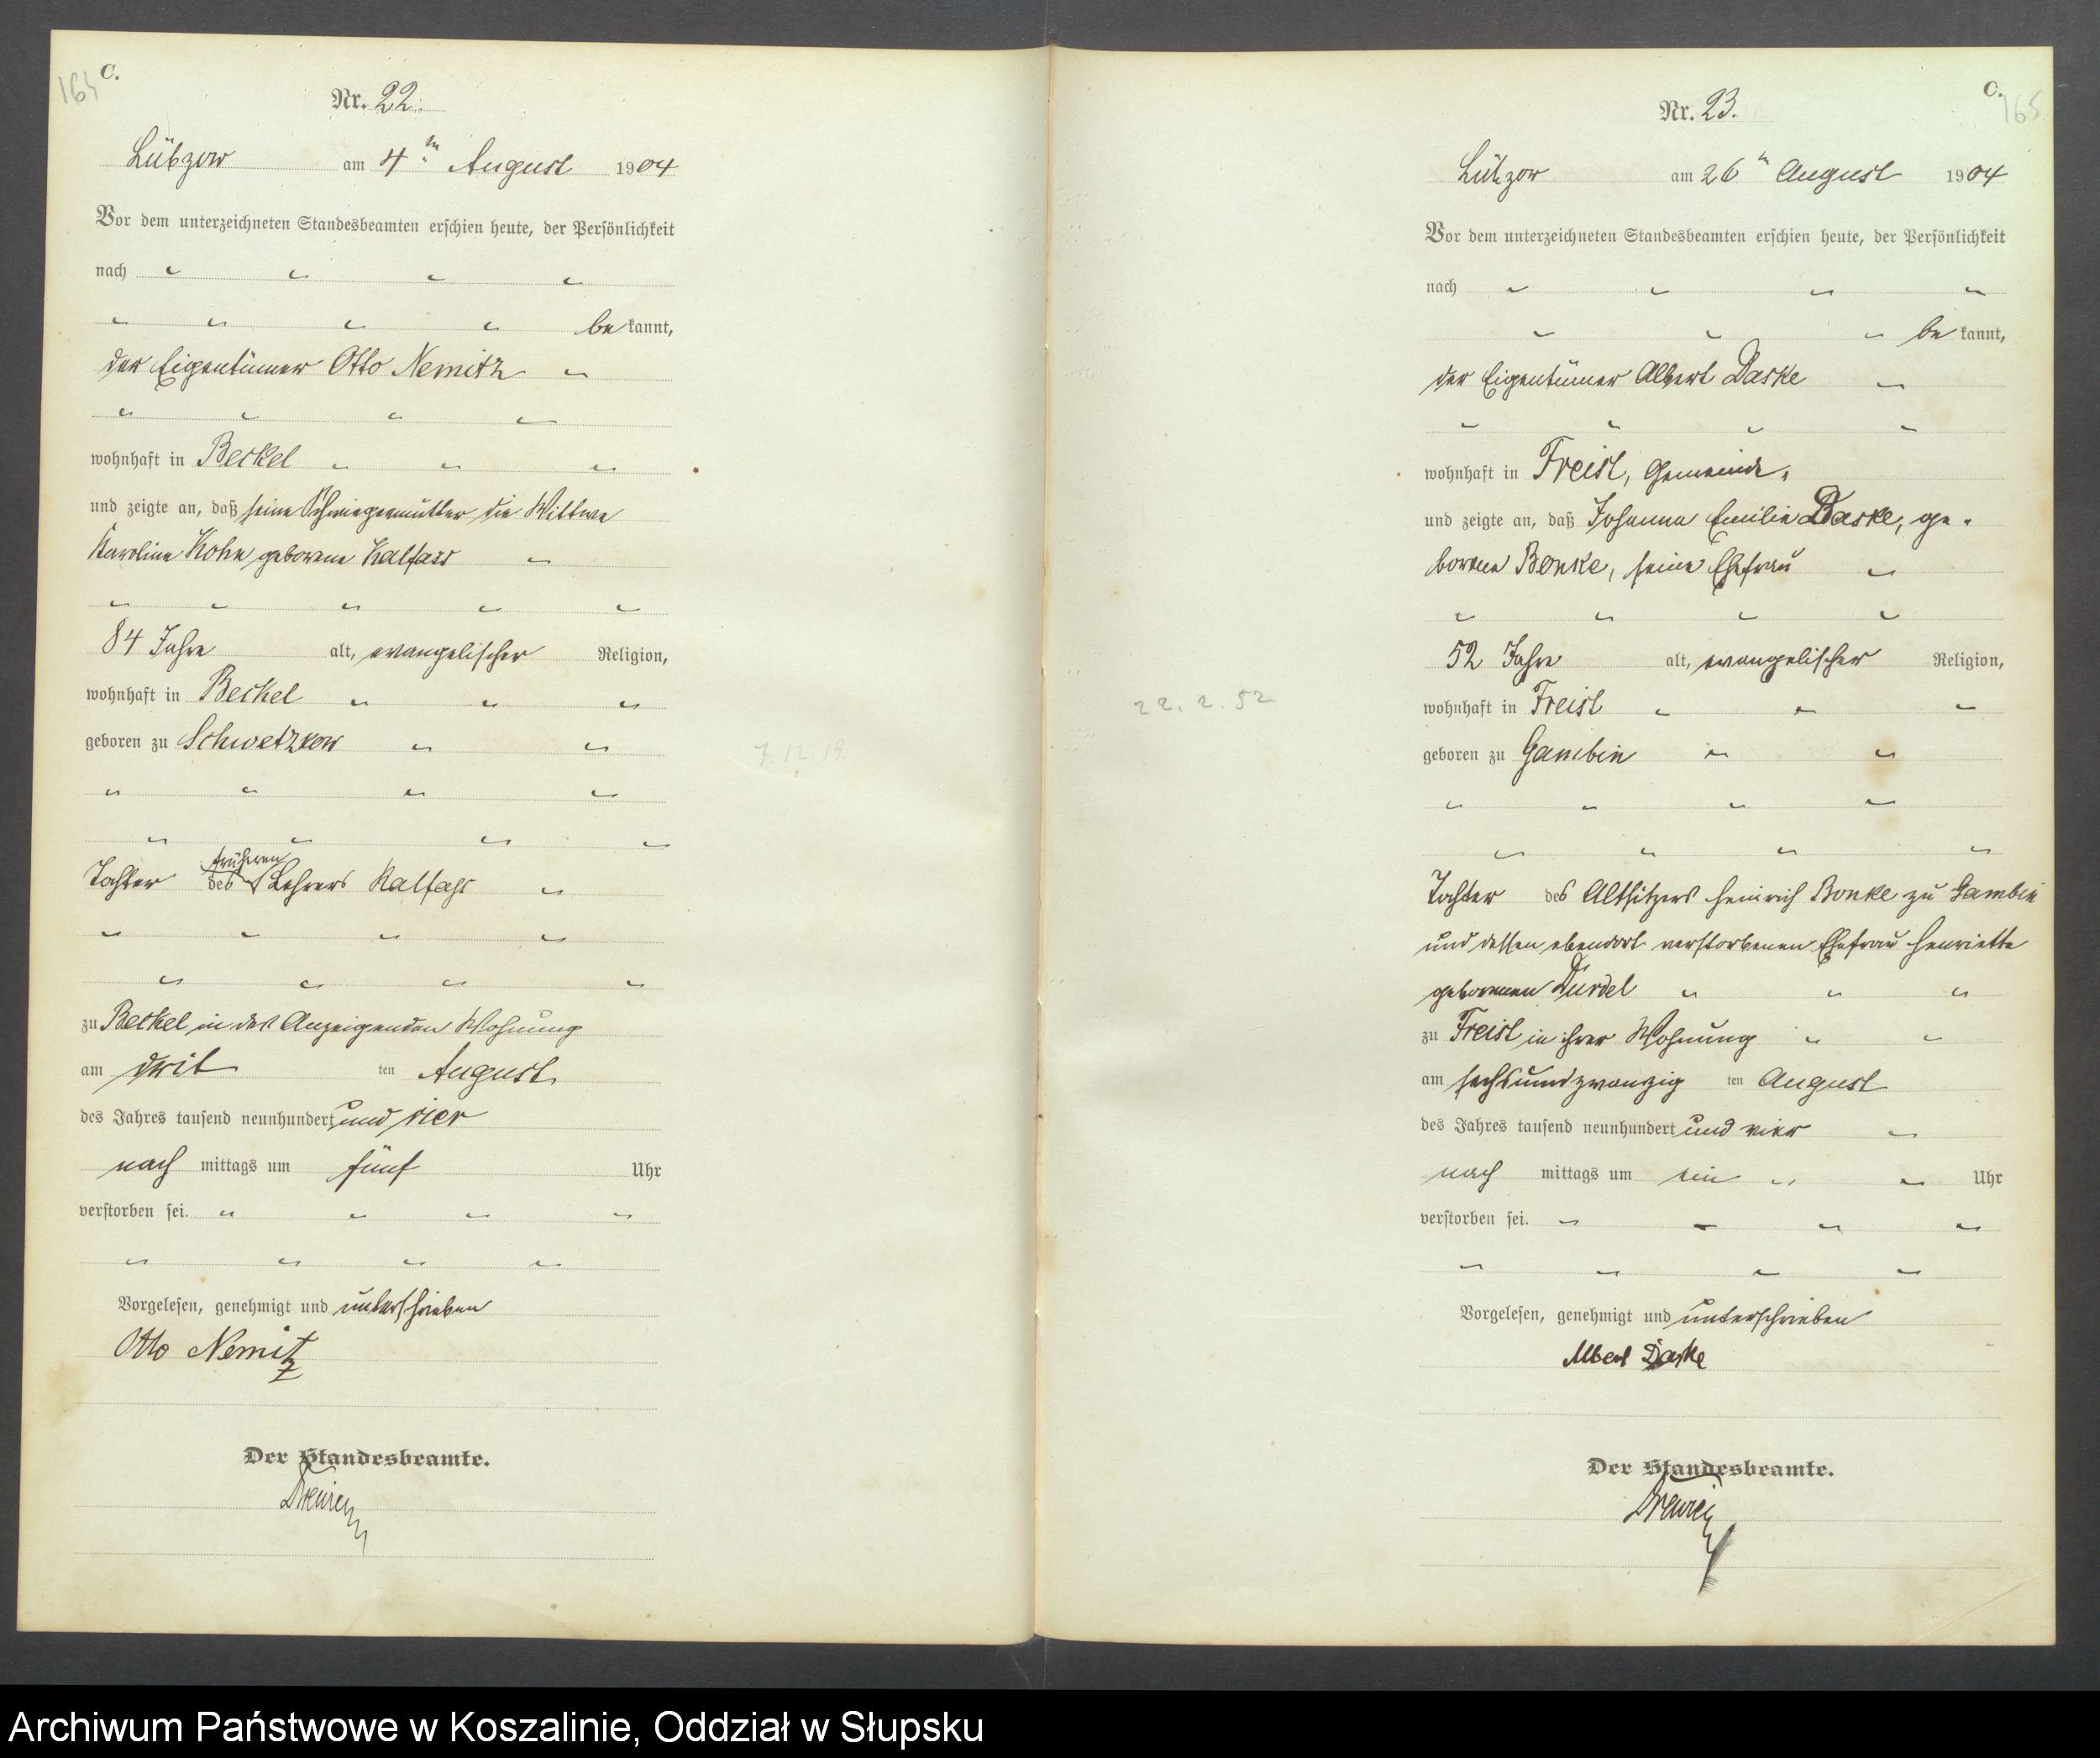 164
C.
Nr. 22.
Lübzow am 4ten August 1904
Vor dem unterzeichneten Standesbeamten erschien heute, der Persönlichkeit
nach
be kannt,
der Eigentümer Otto Nemitz
wohnhaft in Beckel
und zeigte an, daß seine Schwiegermutter die Wittwe
Karoline Kohn geborene Kalfass
84 Jahre alt, evangelischer Religion,
wohnhaft in Beckel
geboren zu Schwetzkow
7.12.19
früheren
Tochter des Lehrers Kalfass
zu Beckel in des Anzeigenden Wohnung
am drit ten August
des Jahres tausend neunhundert und vier
nach mittags um fünf Uhr
verstorben sei.
Vorgelesen, genehmigt und unterschrieben
Otto Nemitz
Der Standesbeamte.
C.
165
Nr. 23.
Lübzow am 26ten August 1904
Vor dem unterzeichneten Standesbeamten erschien heute, der Persönlichkeit
nach
be kannt,
der Eigentümer Albert Daske
wohnhaft in Freist, Gemeinde.
und zeigte an, daß Johanna Emilie Daske, ge-
borene Bonke, seine Ehefrau
52 Jahre alt, evangelischer Religion,
22.2.52
wohnhaft in Freist
geboren zu Gambin
Tochter des Altsitzers Heinrich Bonke zu Gambin
und dessen ebendort verstorbenen Ehefrau Henriette
geborenen Durdel
zu Freist in ihrer Wohnung
am sechsundzwanzig ten August
des Jahres tausend neunhundert und vier
nach mittags um ein Uhr
verstorben sei.
Vorgelesen, genehmigt und unterschrieben
Albert Daske
Der Standesbeamte.
Archiwum Państwowe w Koszalinie, Oddział w Słupsku